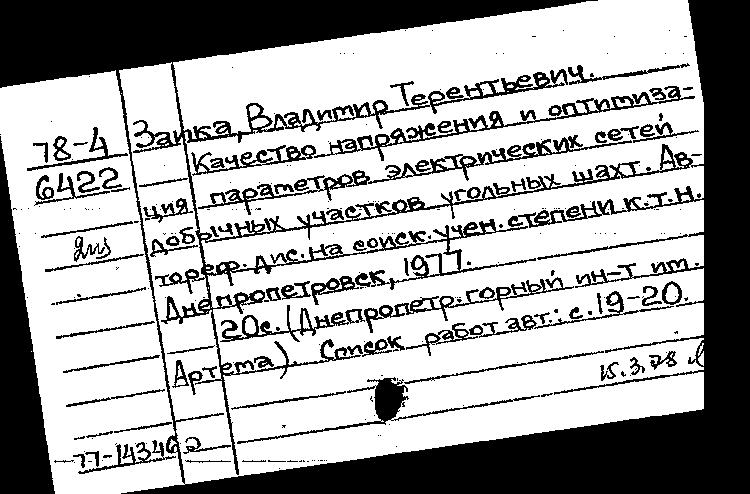 78-4
6422
Заика, Владимир Терентьевич.
Качество напряжения и оптимиза-
ция параметров электрических сетей
добычных участков угольных шахт. Ав-
тореф. дис. на соиск. учен. степени к.т.н.
Днепропетровск, 1977.
20с. (Днепропетр. горный ин-т им.
Артема). Список работ авт.: с. 19-20.
15.3.78
77-14346